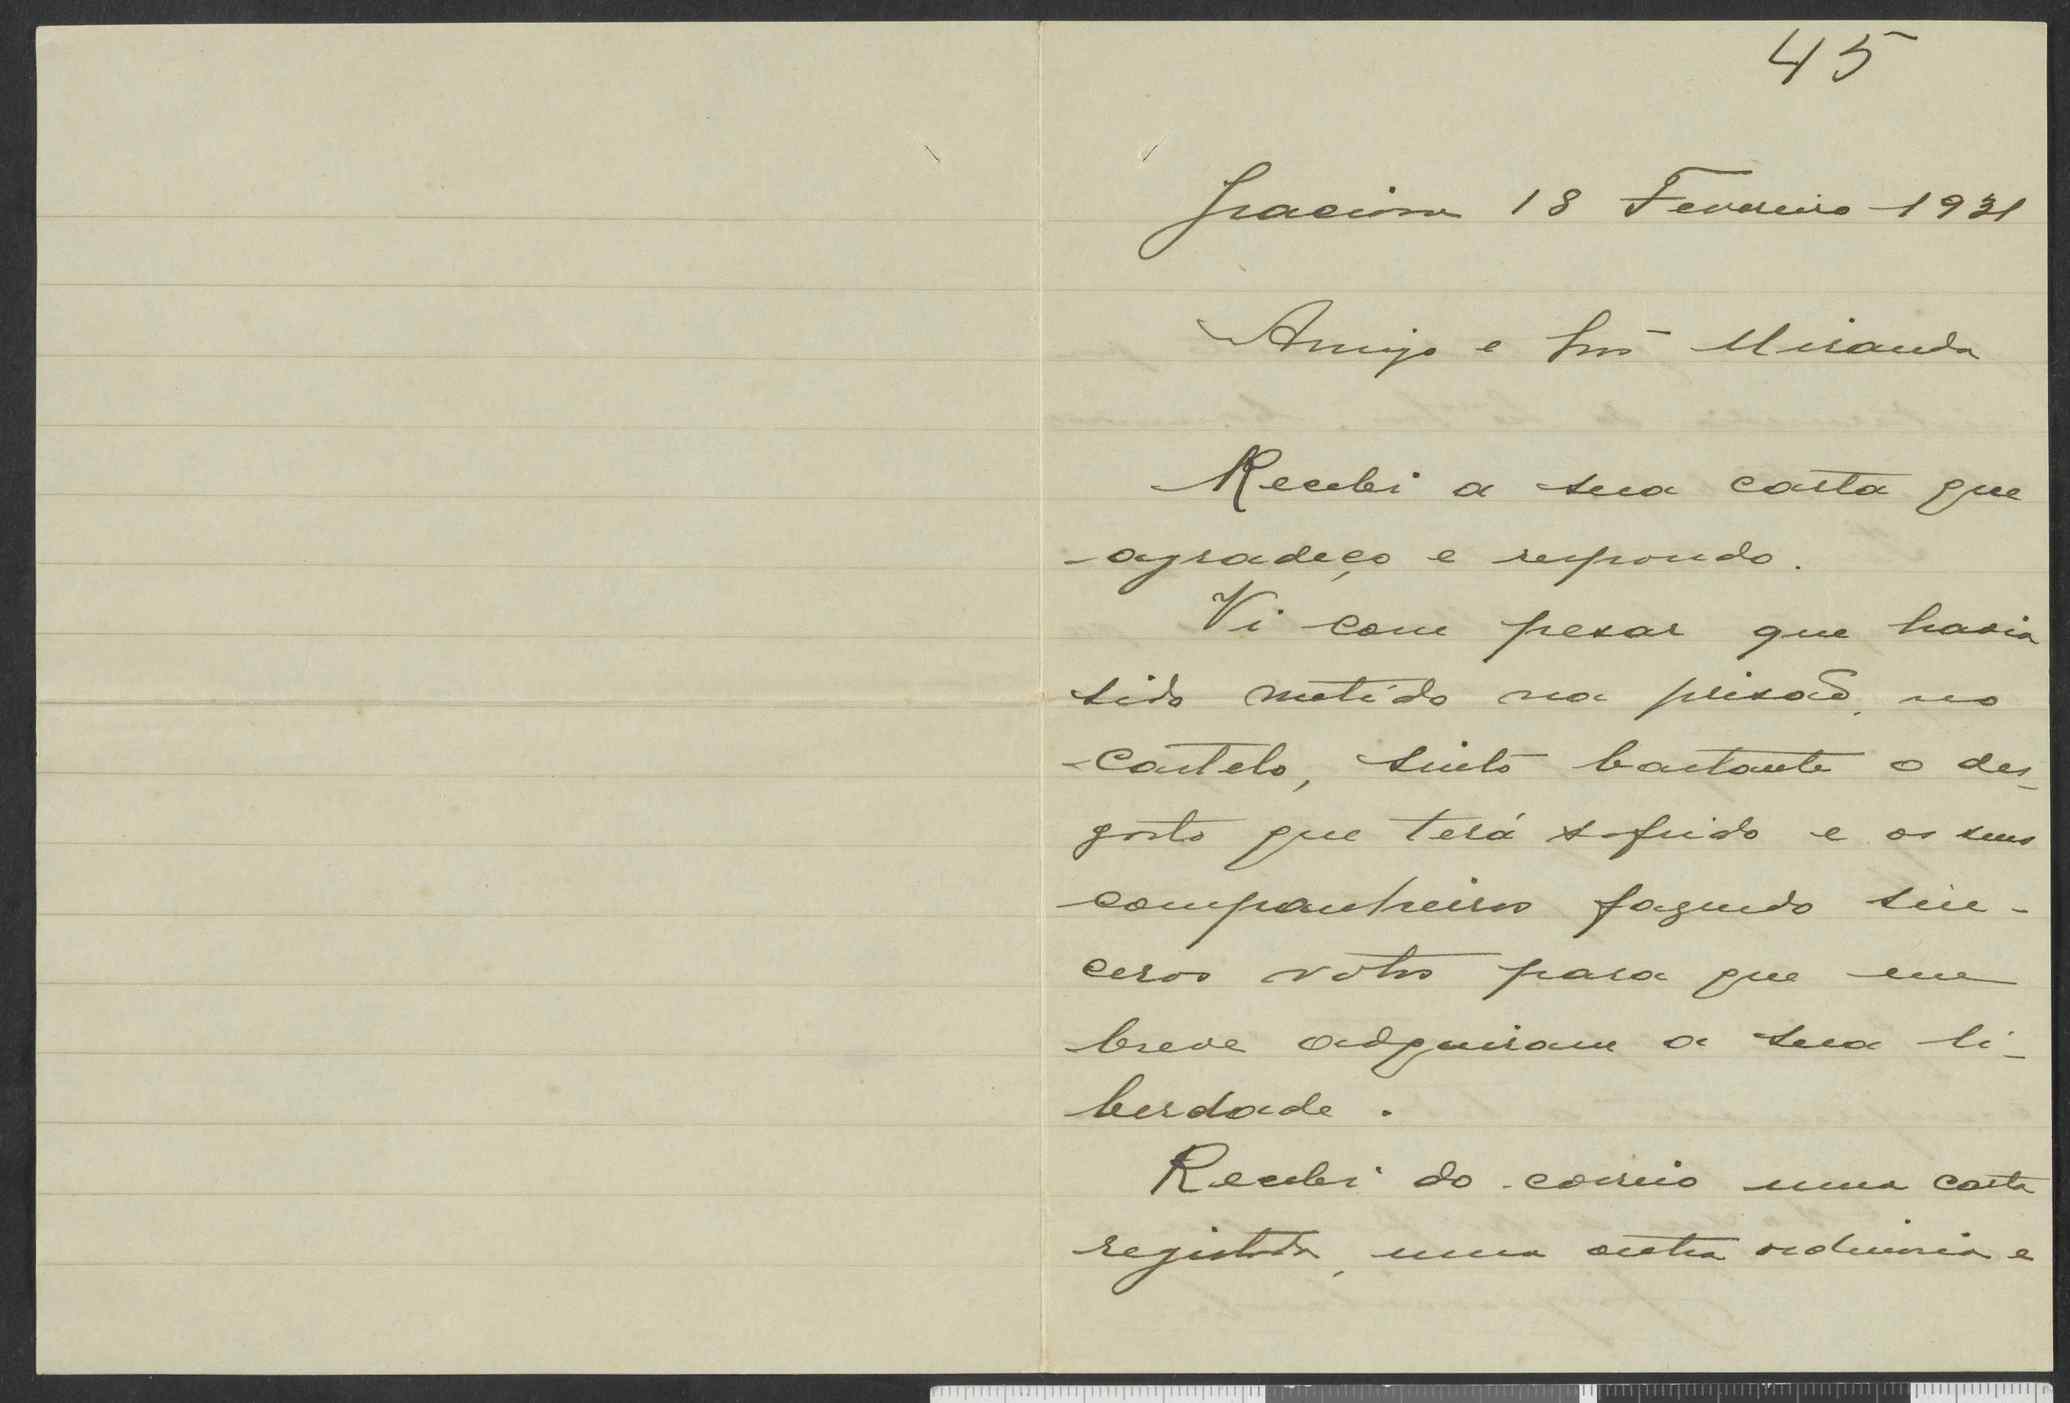 45
Graciosa 18 Fevereiro 1931
Amigo e Snr Miranda
Recebi a sua carta que
agradeço e respondo.
Vi com pesar que havia
sido metido na prisão, no
Castelo, sinto bastante o des-
gosto que terá sofrido e os seus
companheiros fazendo sin-
ceros votos para que em
breve adquiram a sua li-
berdade.
Recebi do correio uma carta
registada, uma outra ordinaria e